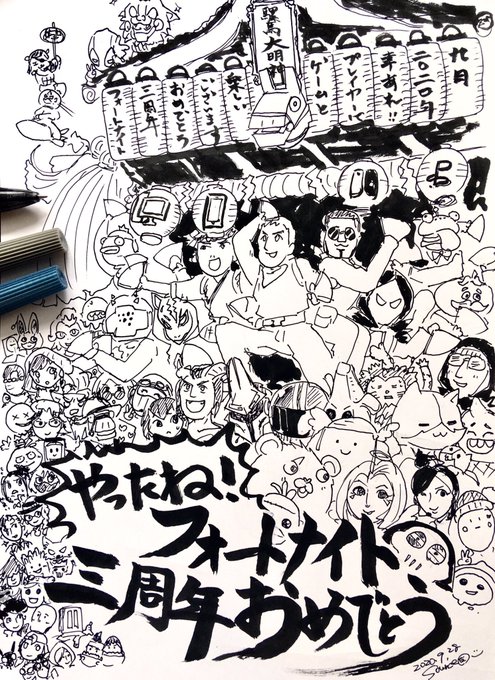 フォートナイト
三周年
おめでとう
ございます
楽しい
馬大明神
ゲームと
プレイヤーに
幸あれ!!
二〇二〇年
九月
やったね!
フォートナイト
三周年おめでとう
2020.9.28